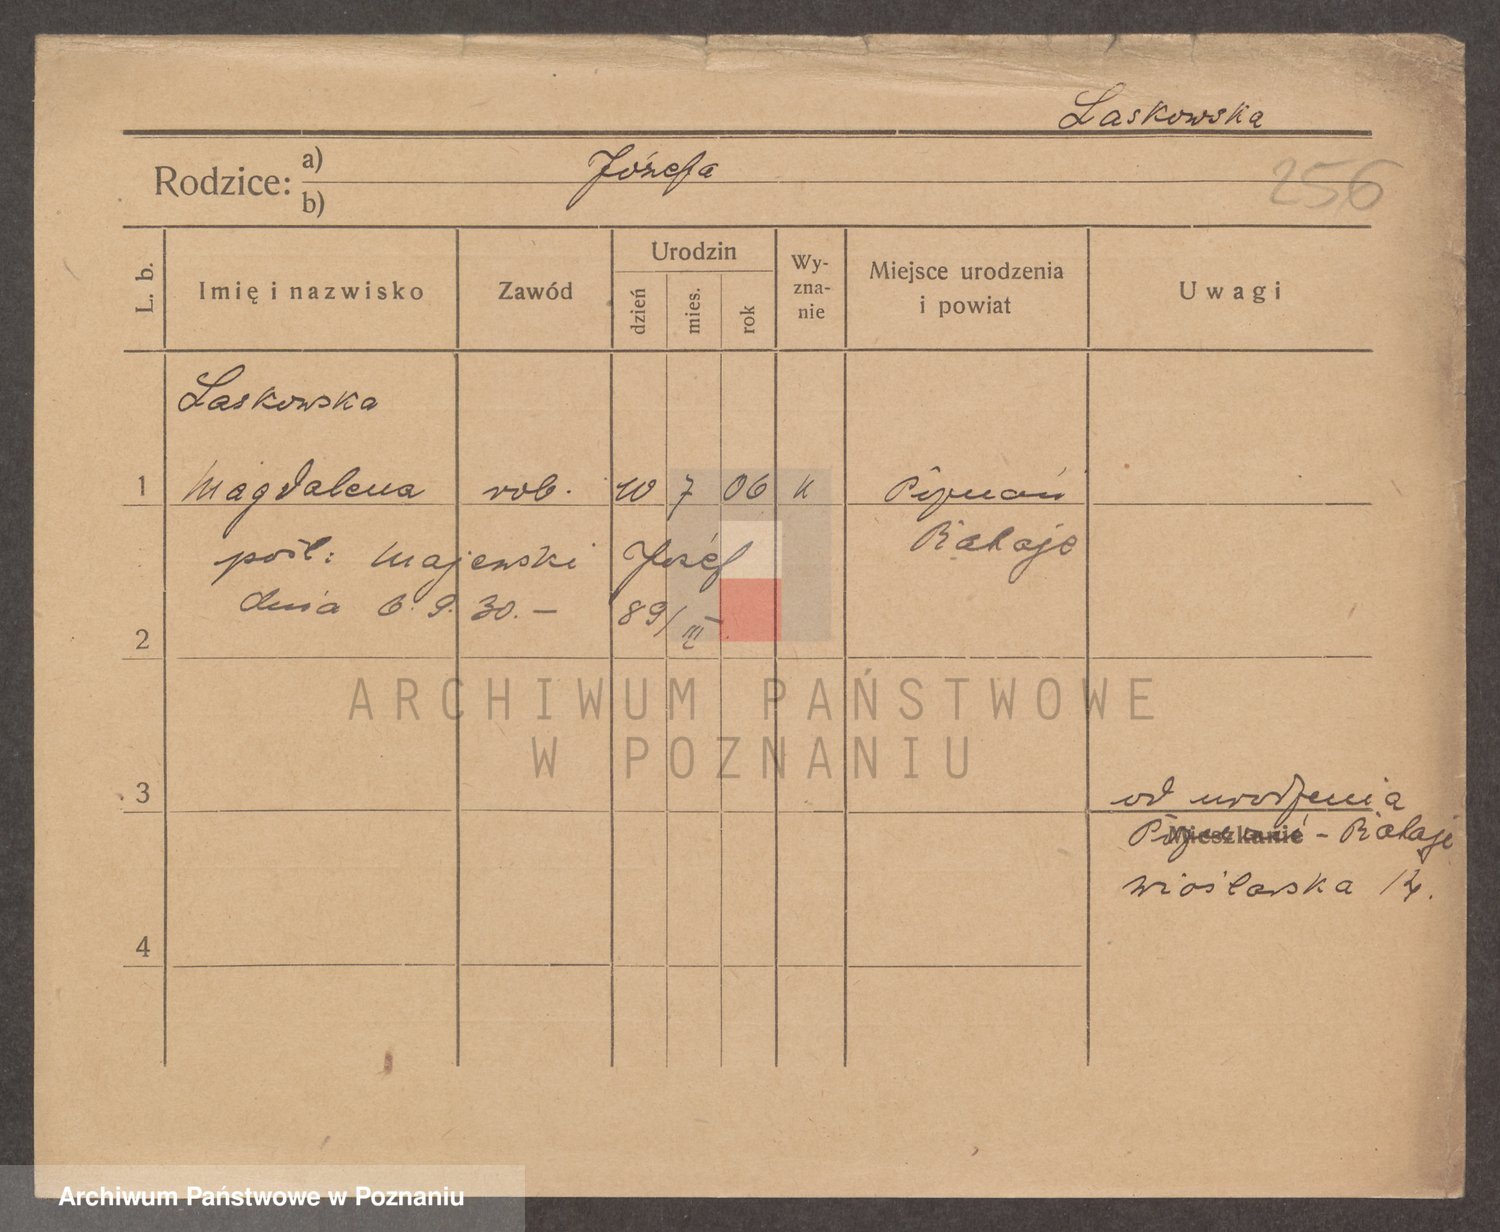 Laskowska
Rodzice: a) Józefa
b)
256
L. b. Imię i nazwisko Zawód Urodzin dzień mies. rok Wy-zna-nie Miejsce urodzenia i powiat Uwagi
Laskowska
1 Magdalena rob. 10 7 06 k Poznań
Rataje
pośl: Majewski Józef
dnia 6.9.30.– 89/III
2
ARCHIWUM PAŃSTWOWE
W POZNANIU
3
od urodzenia
Mieszkanie
Poznań - Rataje
Wioślarska 14.
4
Archiwum Państwowe w Poznaniu